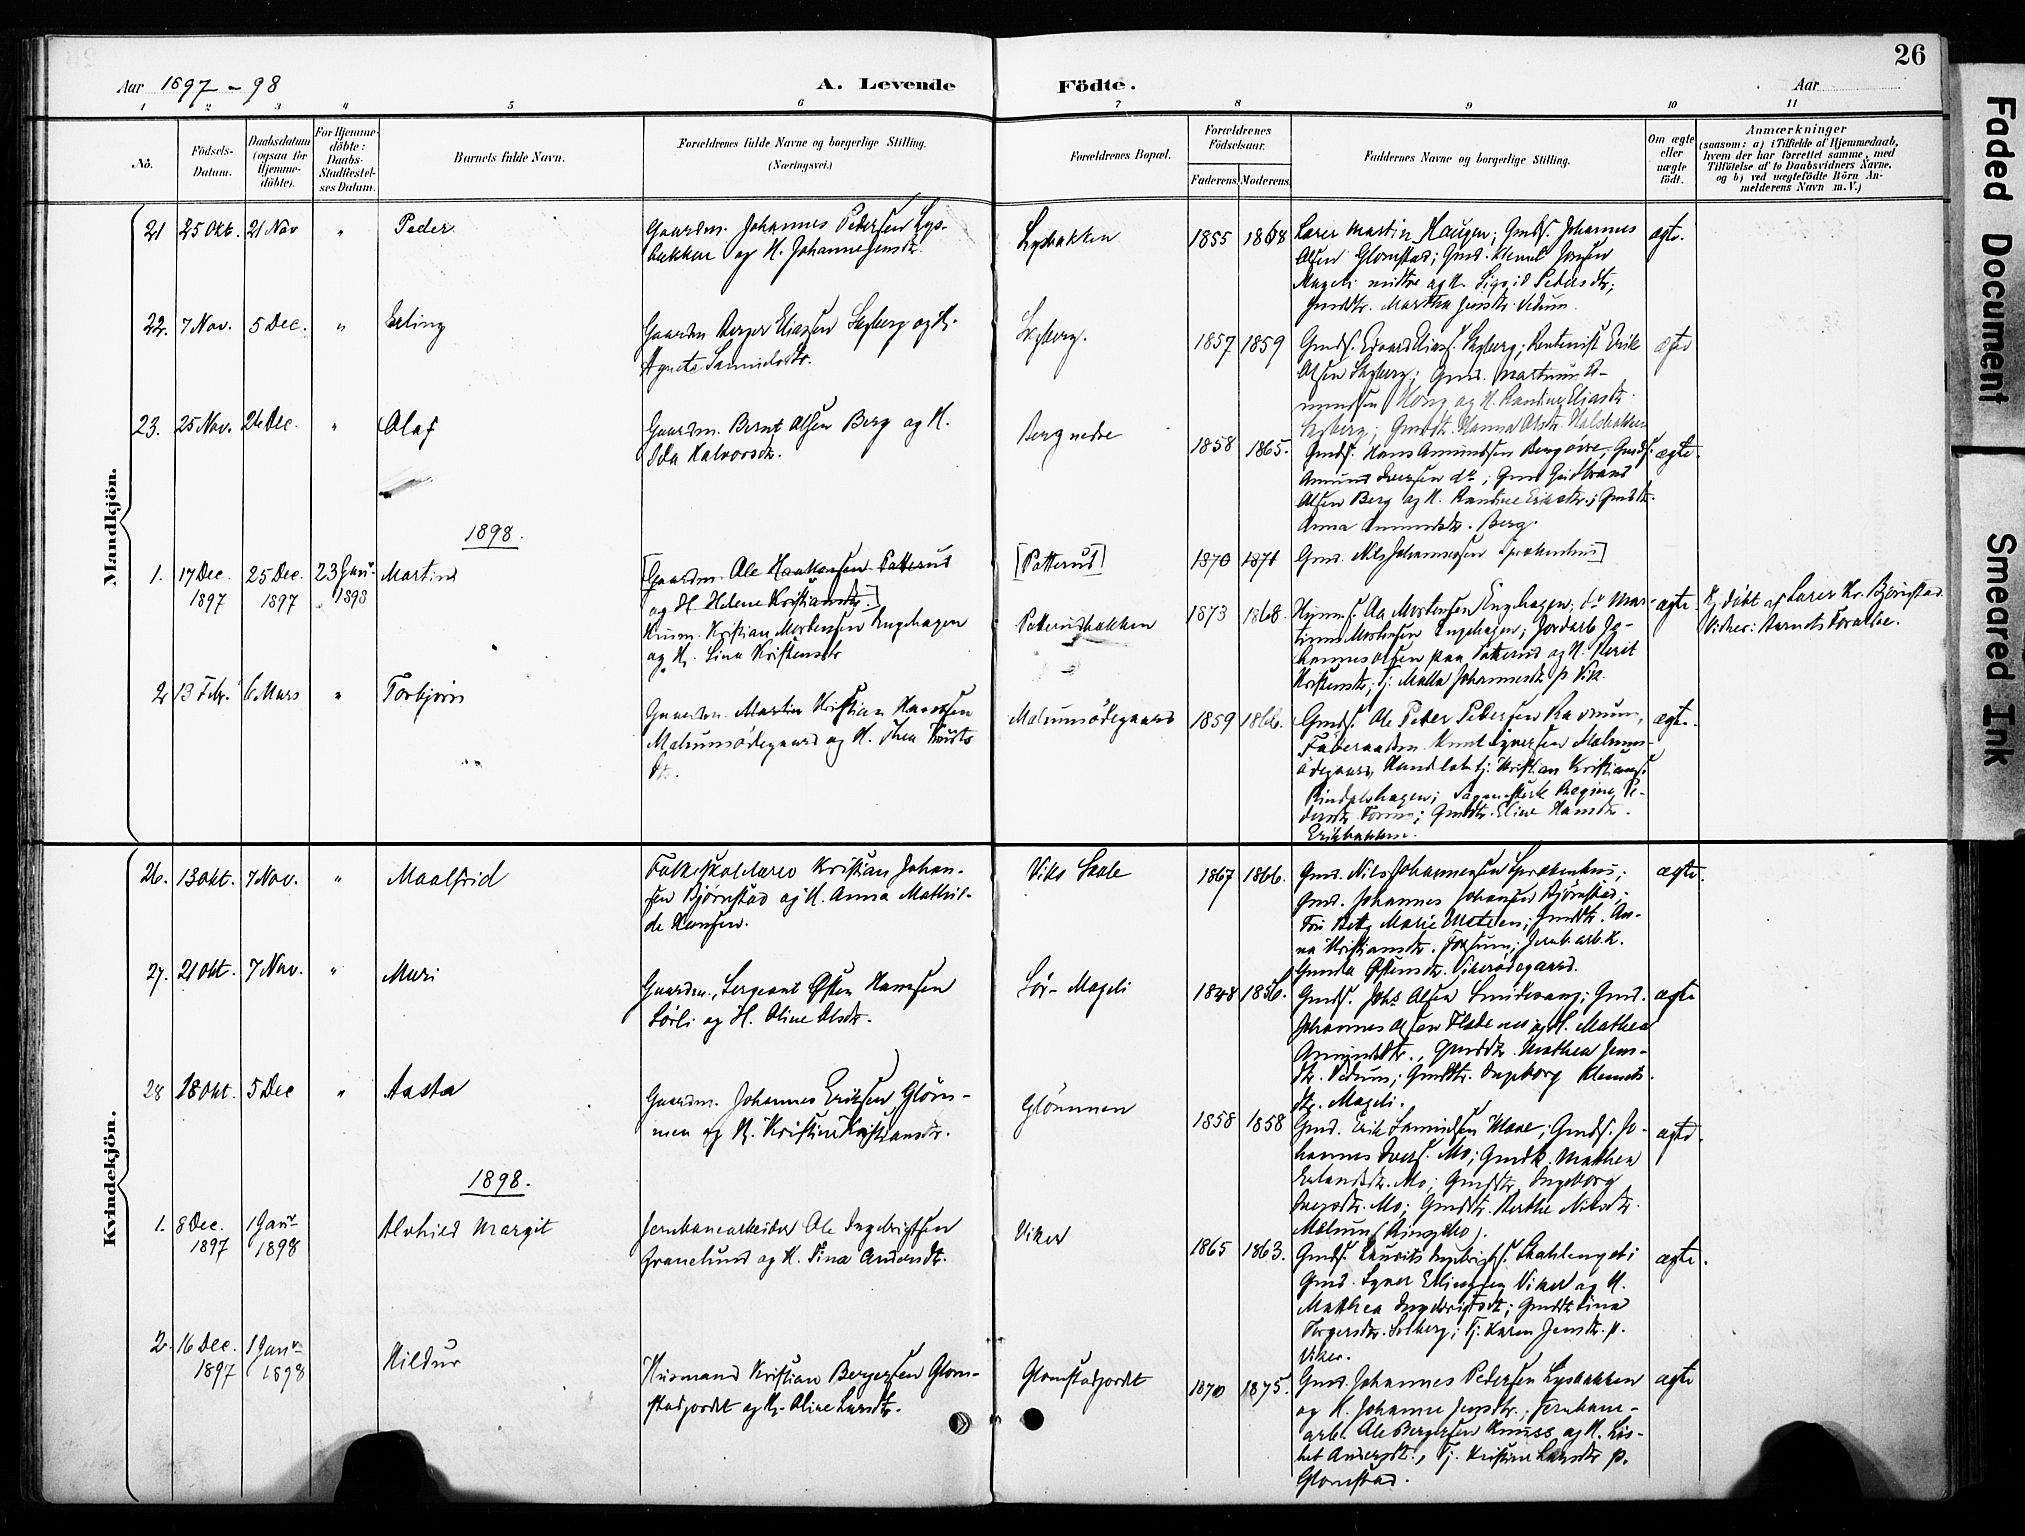 26
Aar 1897 - 98 A. Levende Födte. Aar
1 2 3 4 5 6 7 8 9 10 11
Nö.
Födsels-Datum.
Daabsdatum (ogsaa för Hjemme-döbte).
For Hjemme-döbte: Daabs-Stadfæstel-ses Datum.
Barnets fulde Navn.
Forældrenes fulde Navne og borgerlige Stilling.
(Næringsvei.)
Forældrenes Bopæl.
Forældrenes Födselsaar.
Faderens. Moderens.
Faddernes Navne og borgerlige Stilling.
Om ægte eller uægte födt.
Anmærkninger
(saasom: a) i Tilfælde af Hjemmedaab, hvem der har forrettet samme, med Tilföielse af to Daabsvidners Navne, og b) ved uægtefödte Börn An-melderens Navn m. V.)
Mandkjön.
21 25 Okt. 21 Nov " Peder
Gaardm. Johannes Pedersen Lys-
bakken og H. Johanne Jensdtr.
Lysbakken 1855 1868
Lærer Martin Haugen; Gmds. Johannes
Olsen Glomstad; Gmd. Klemet Jonsen
Mageli nedre og H. Sigrid Pedersdtr;
Gmdtr. Martha Jensdtr. Vedum
ægte.
22. 7 Nov. 5 Dec. " Erling
Gaardm Berger Eliasen Skyberg og H.
Agnete Samuelsdtr.
Skyberg. 1857 1859
Gmds. Edvard Elias. Skyberg; Rentenist Erik
Olsen Skyberg; Gmd. Martinus A-
mundsen Hong og H. Randine Eliasdtr.
Skyberg; Gmdtr. Hanna Olsdtr. Kalsbakken
ægte
23. 25 Nov. 26 Dec. " Olaf
Gaardm. Bernt Olsen Berg og H.
Ida Halvorsdtr.
Berg nedre 1858 1865.
Gmds. Hans Amundsen Berg övre, Gmds.
Amund Iversen do; Gmd Gudbrand
Olsen Berg og H. Randine Eriksdtr.; Gmdtr.
Anna Amundsdtr. Berg.
ægte.
1898.
1. 17 Dec. 1897 25 Dec. 1897 23 Janr. 1898 Martin
[Gaardm. Ole Haakensen Patterud
og H. Helene Kristiansdtr.]
Husm. Kristian Mortensen Engehagen
og H. Lina Kristensdtr
[Patterud] 1870 1871 Gmd. Nils Johannesen Sprækenhus]
Patterudbakken 1873 1868.
Husm.s. Aa Mortensen Engehagen; do Mar-
tinus Mortensen Engehagen; Jordarb Jo-
hannes Olsen paa Patterud og H. Berit
Kristensdtr; Tj. Malla Johannesdtr p. Vik.
ægte.
Hj. döbt af Lærer Kr. Björnstad.
Vidner: Barnets Forældre.
2 13 Febr. 6 Mars " Torbjörn
Gaardm. Martin Kristian Hansen
Mælumsödegaard og H. Thea Knuds
dtr.
Mælumsödegaard 1859 1866.
Gmds. Ole Peder Pedersen Rasmum,
Föderaadsm. Knut Syversen Mælums-
ödegaard, Handlebetj. Kristian Kristians.
Rindalshagen; Regine Pe-
dersdtr. ; Gmdtr. Eline Hansdtr.
Erikbakken.
ægte.
Kvindekjön.
26. 13 Okt. 7 Nov. " Maalfrid
Folkeskolelærer Kristian Johan-
sen Björnstad og H. Anna Mathil-
de Hansen.
Viks Skole 1867 1866.
Gmd. Nils Johannesen Sprækenhus;
Gmd. Johannes Johansen Björnstad;
Frk Betzy Marie Madsen; Gmdtr. An-
na Kristiansdtr. Fossum; Jernb.arb.k.
Gunda Østensdtr. Vikerödegaard.
ægte.
27. 21 Okt. 7 Nov. " Mari
Gaardm., Sergeant Østen Hansen
Sörli og H. Oline Olsdtr.
Sör-Mageli 1848 1856.
Gmds. Johs Olsen Smidesvang; Gmd.
Johannes Olsen og H. Mathea
Amundsdtr., Gmdtr. Mathea Jens-
dtr. Vedum; Gmdtr. Ingeborg Klemets-
dtr. Mageli.
ægte
28 18 Okt. 5 Dec " Aasta
Gaardm. Johannes Eriksen Glöm-
men og H. Kristine Kristiansdtr.
Glömmen 1858 1858
Gmd. Erik Samuelsen Moxe; Gmds. Jo-
hannes Ivers. Mo; Gmdk. Mathea
Erlandsdtr. Mo; Gmdtr. Ingeborg
Iversdtr. Mo; Gmdtr. Berthe Nilsdtr.
Mælum (Ringebo).
ægte.
1898.
1. 8 Dec. 1897 1 Janr. 1898 Alvhild Margit
Jernbanearbeider Ole Ingebrigtsen
Granelund og H. Tina Andersdtr.
Viker 1865 1863.
Gmds. Laurits Ingebrigts. Stallenget;
Gmd. Syver Ellingsen Viker og H.
Mathea Ingebrigtsdtr; Gmdtr Lina
Torgersdtr. Solberg; Tj. Karen Jensdtr. p.
Viker.
ægte.
2. 16 Dec. 1897 1 Janr. 1898 Hildur
Husmand Kristian Bergersen Glom-
stadjordet og H. Oline Larsdtr.
Glomstadjordet 1870 1875.
Gmd. Johannes Pedersen Lysbakken
og H. Johanne Jensdtr.; Jernbane-
arb. Ole Bergersen Kruss og H. Lis-
bet Andersdtr., Tj. Kristine Larsdtr p.
Glomstad.
ægte
Faded Document
Smeared Ink